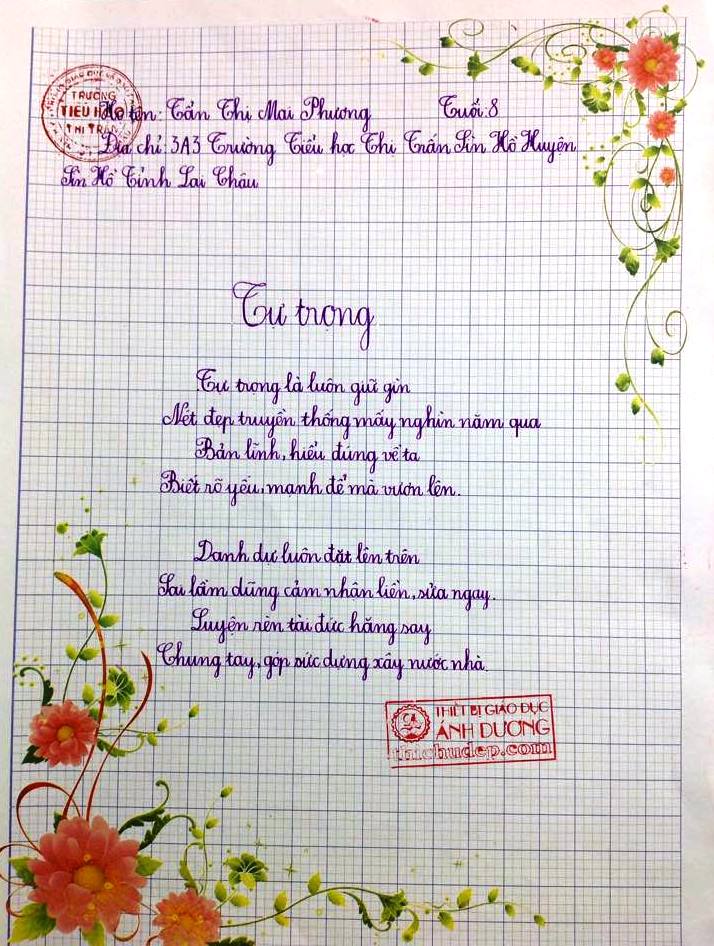 TRƯỜNG
TIỂU HỌC
THỊ TRẤN
Họ tên: Tẩn Thị Mai Phương Tuổi: 8
Địa chỉ: 3A3 Trường Tiểu học Thị Trấn Sìn Hồ Huyện
Sìn Hồ Tỉnh Lai Châu
Tự trọng
Tự trọng là luôn giữ gìn
Nét đẹp truyền thống mấy nghìn năm qua
Bản lĩnh, hiểu đúng về ta
Biết rõ yếu, mạnh để mà vươn lên.
Danh dự luôn đặt lên trên
Sai lầm dũng cảm nhân liền, sửa ngay.
Luyện rèn tài đức hăng say
Chung tay, góp sức dựng xây nước nhà.
THIẾT BỊ GIÁO DỤC
ÁNH DƯƠNG
thichudep.com